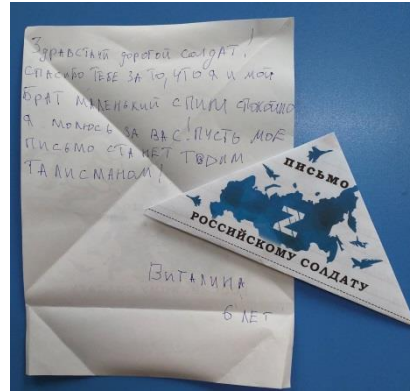 Здравствай дорогой солдат!
спасибо тебе за то, что я и мой
брат маленький спим спокойно
я молюсь за вас! пусть мое
письмо станет твоим
талисманом!
Виталина
6 лет
ПИСЬМО
Z
РОССИЙСКОМУ СОЛДАТУ